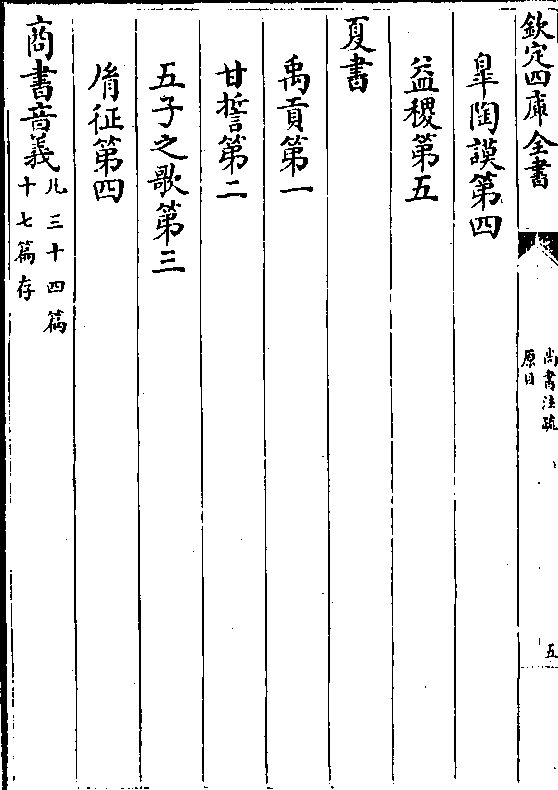 欽定四庫全書
尚書注疏
原目
五
皐陶謨第四
益稷第五
夏書
禹貢第一
甘誓第二
五子之歌第三
胤征第四
商書音義凡三十四篇
十七篇存